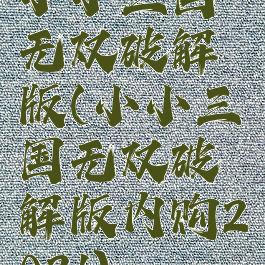 小小三国
无双破解
版(小小三
国无双破
解版内购2